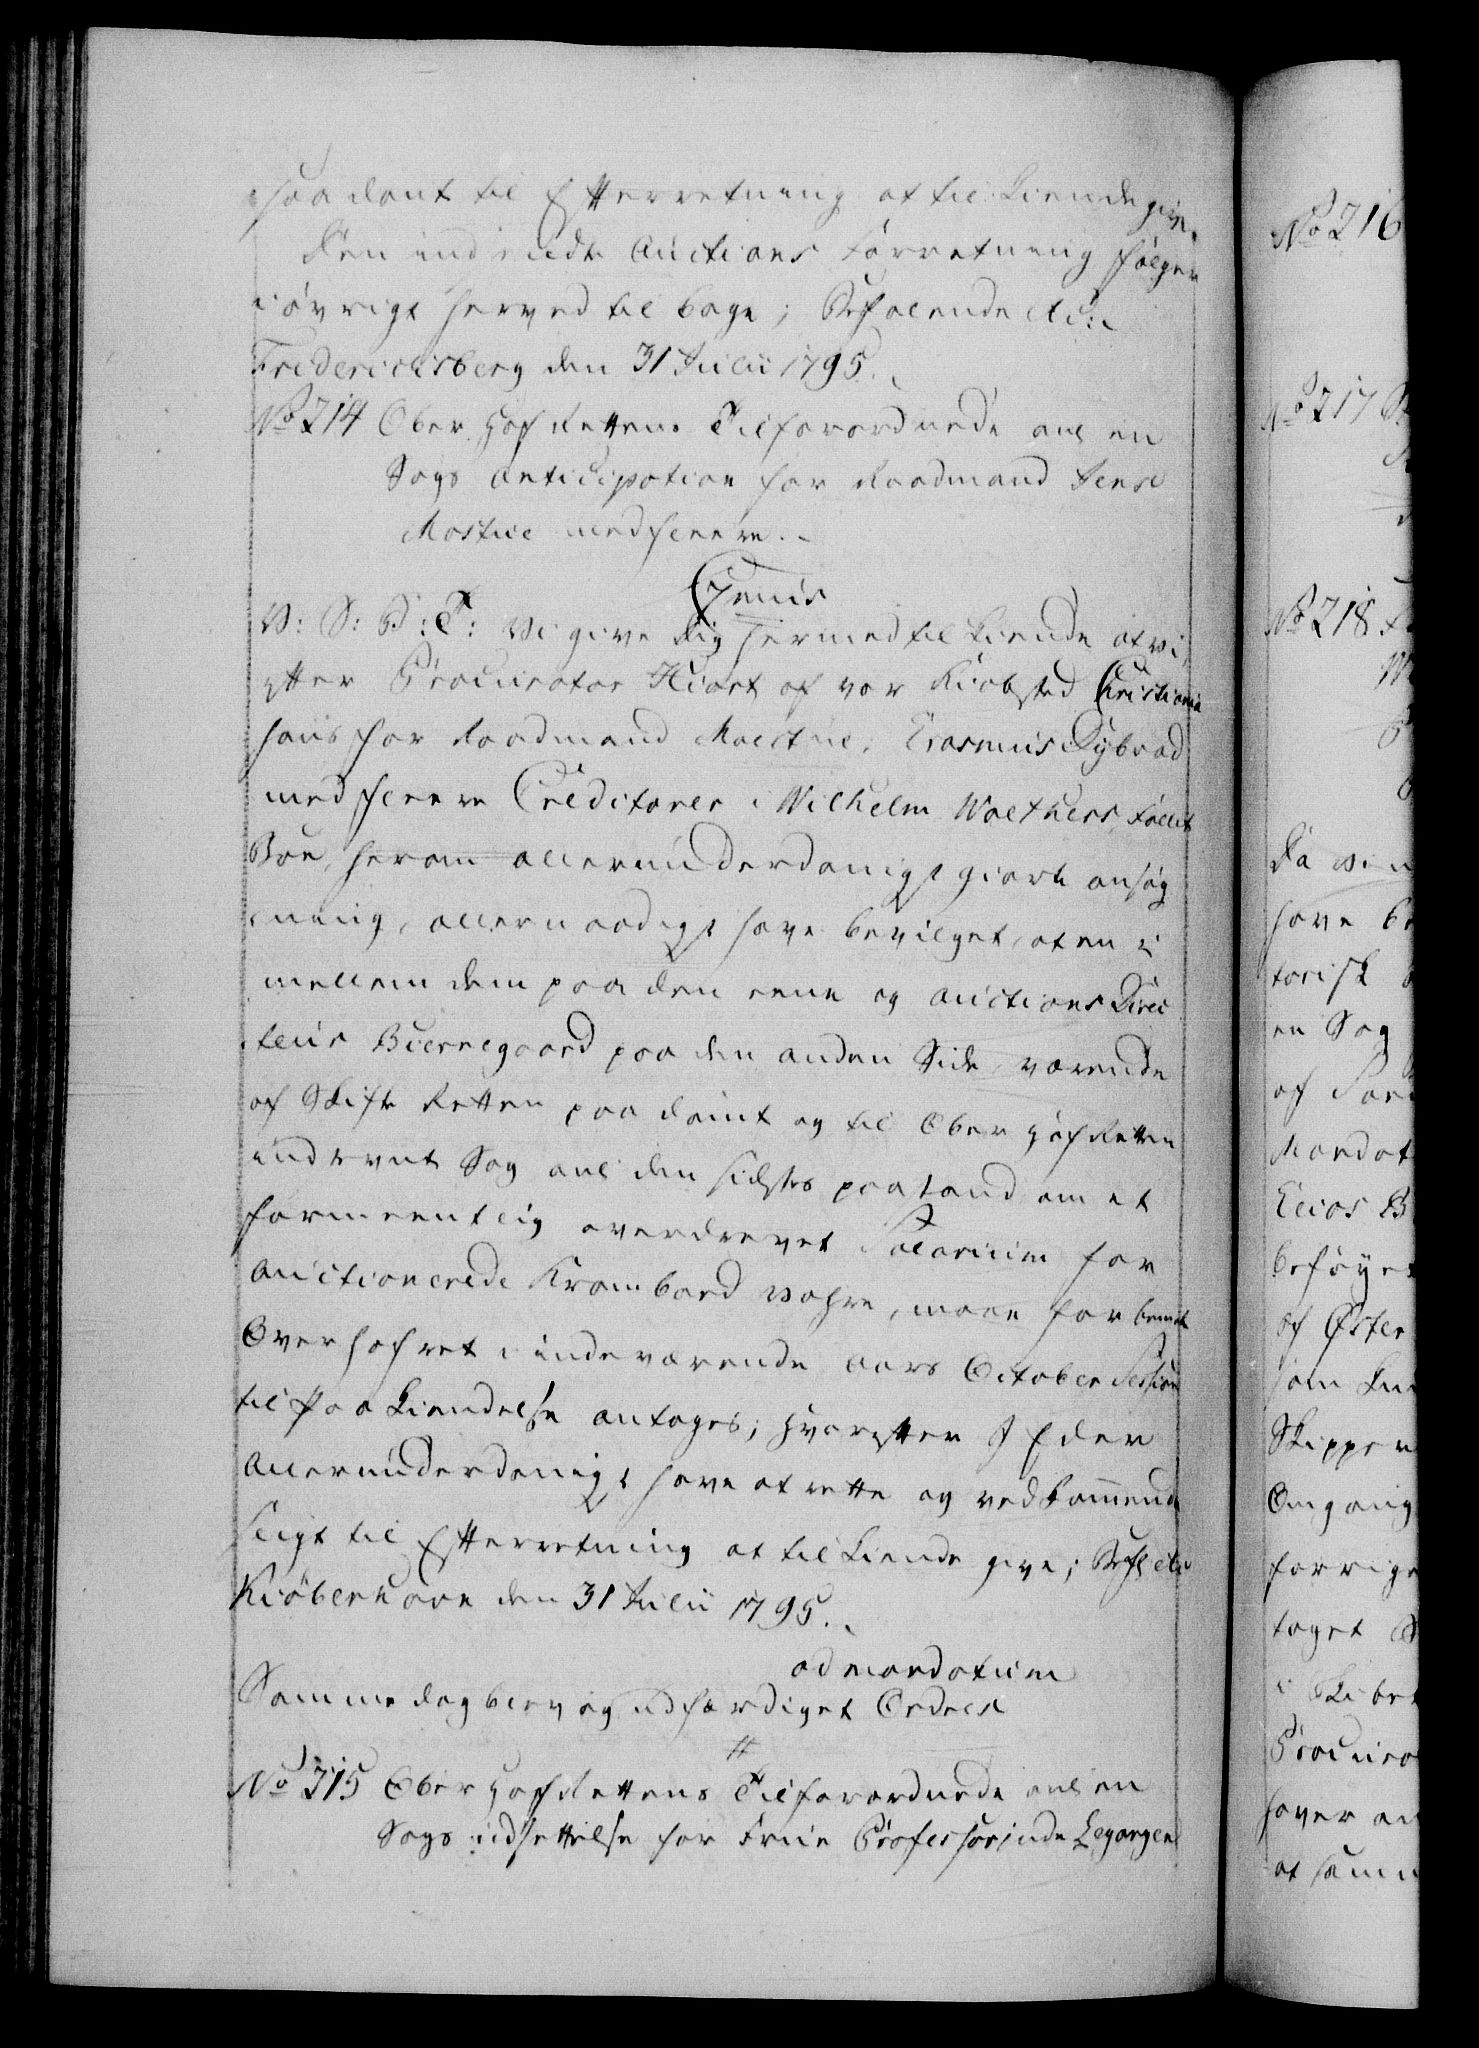 saadant til Efterretning at tilkiendegive.
Den indsendte Auctions Forretning følger
i øvrigt herved tilbage; Befalende etc:
Fredericksberg den 31 Julii 1795.
No 214 Ober Hof Rettens Tilforordnede anl en
Sags anticipation for Raadmand Jens
Mostue med fleere.
Genis
V: S: B: T: Vi give Dig hermed tilkiende at vi,
efter Procurator Hiort af vor Kiøbsted Christiania
hans for Raadmand Moestue, Erasmus Dybvad
med fleere Creditorer i Wilhelm Walthers Fallit
Boe, herom allerunderdanigst giorte ansøg
ning, allernaadigst have bevilget, at en i
mellem dem paa den eene og Auctions Direc
teur Biernegaard paa den anden Side værende
af Skifte Retten paadømt og til Ober Hof Retten
indstevnt Sag anl den sidstes paastand om et
formeentlig overdrevet Salarium for
auctionerede Krambod Vahre, maae for bemte
Overhofret i indeværende Aars October Session
til Paakiendelse antages; hvorefter I Eder
allerunderdanigst have at rette og vedkommende
sligt til Efterretning at tilkiende give; Befl etc
Kiøbenhavn den 31 Julii 1795.
ad mandatum
Samme dag blev og udfærdiget Ordres
No 215 Ober Hof Rettens Tilforordnede anl en
Sags udsettelse for Frue Professorinde Legangen
No 216
No 217
No 218
Da vi
have be
torisk
en Sag
af
Mandat
Elias B
beføyet
af Øster
som
Skipper
Omgang
forrige
taget
Procura
haver an
at samm